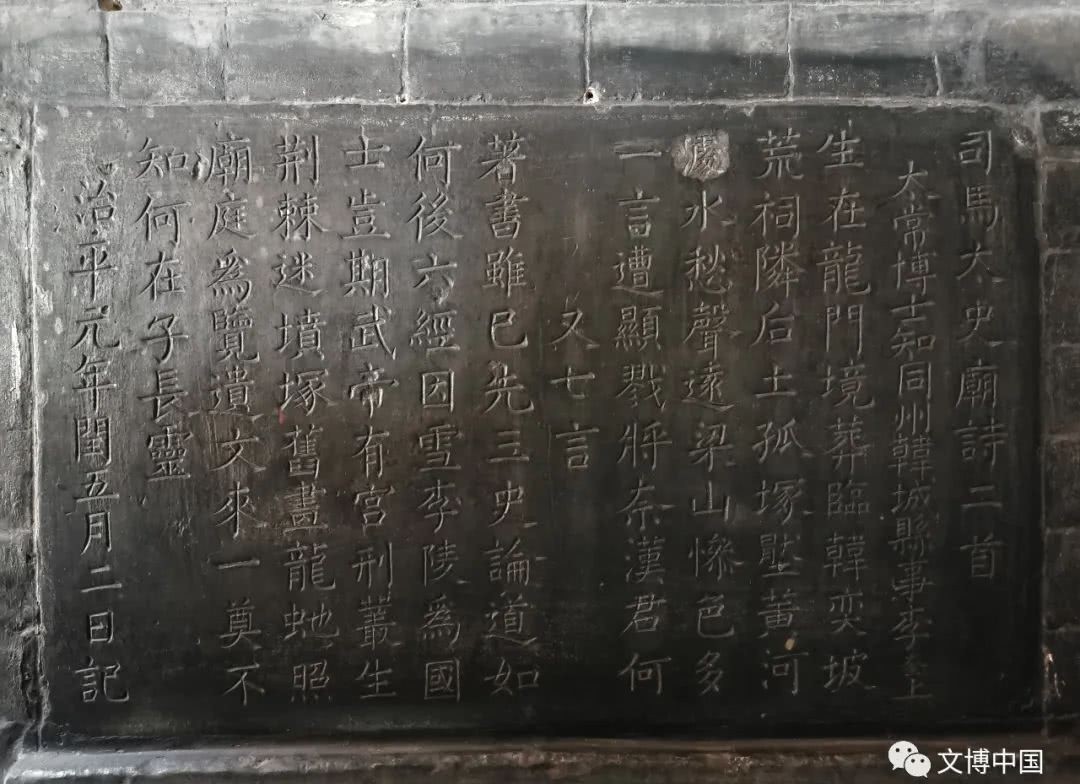 司馬大史廟詩二首
大常博士知同州韓城縣事李奎上
生在龍門境葬臨韓奕坡
荒祠隣后土孤塚壓黃河
水愁聲遠梁山慘色多
一言遭顯戮將奈漢君何
又七言
著書雖已先三史論道如
何後六經因雪李陵爲國
士豈期武帝有宮刑叢生
荆棘迷墳塚舊畫龍虵照
廟庭爲覽遺文來一奠不
知何在子長靈
治平元年閏五月二日記
文博中国